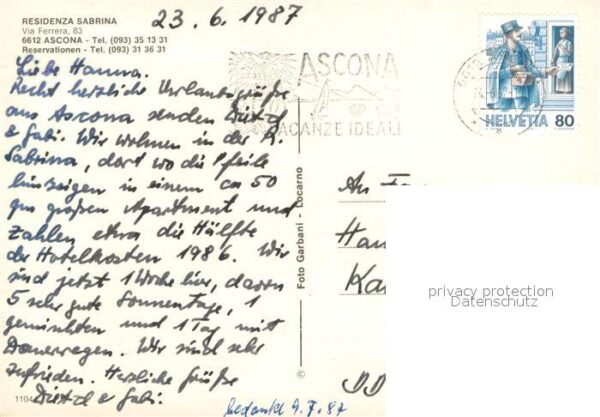 RESIDENZA SABRINA
Via Ferrera, 83
6612 ASCONA - Tel. (093) 35 13 31
Reservationen - Tel. (093) 31 36 31
23. 6. 1987
Liebe Hanna.
Recht herzliche Urlaubsgrüße
aus Ascona senden
& Gabi. Wir wohnen in der R.
Sabrina, dort wo die Pfeile
hinzeigen in einem ca 50
qm großen Apartment und
zahlen etwa die Hälfte
der Hotelkosten 1986. Wir
sind jetzt 1 Woche hier, davon
5 sehr gute Sonnentage, 1
gemischten und 1 Tag mit
Dauerregen. Wir sind sehr
zufrieden. Herzliche Grüße
& Gabi.
1104
bedankt 9.7.87
Foto Garbani - Locarno
©
ASCONA
VACANZE IDEALI
HELVETIA 80
An
Han
Ka
DD
privacy protection
Datenschutz